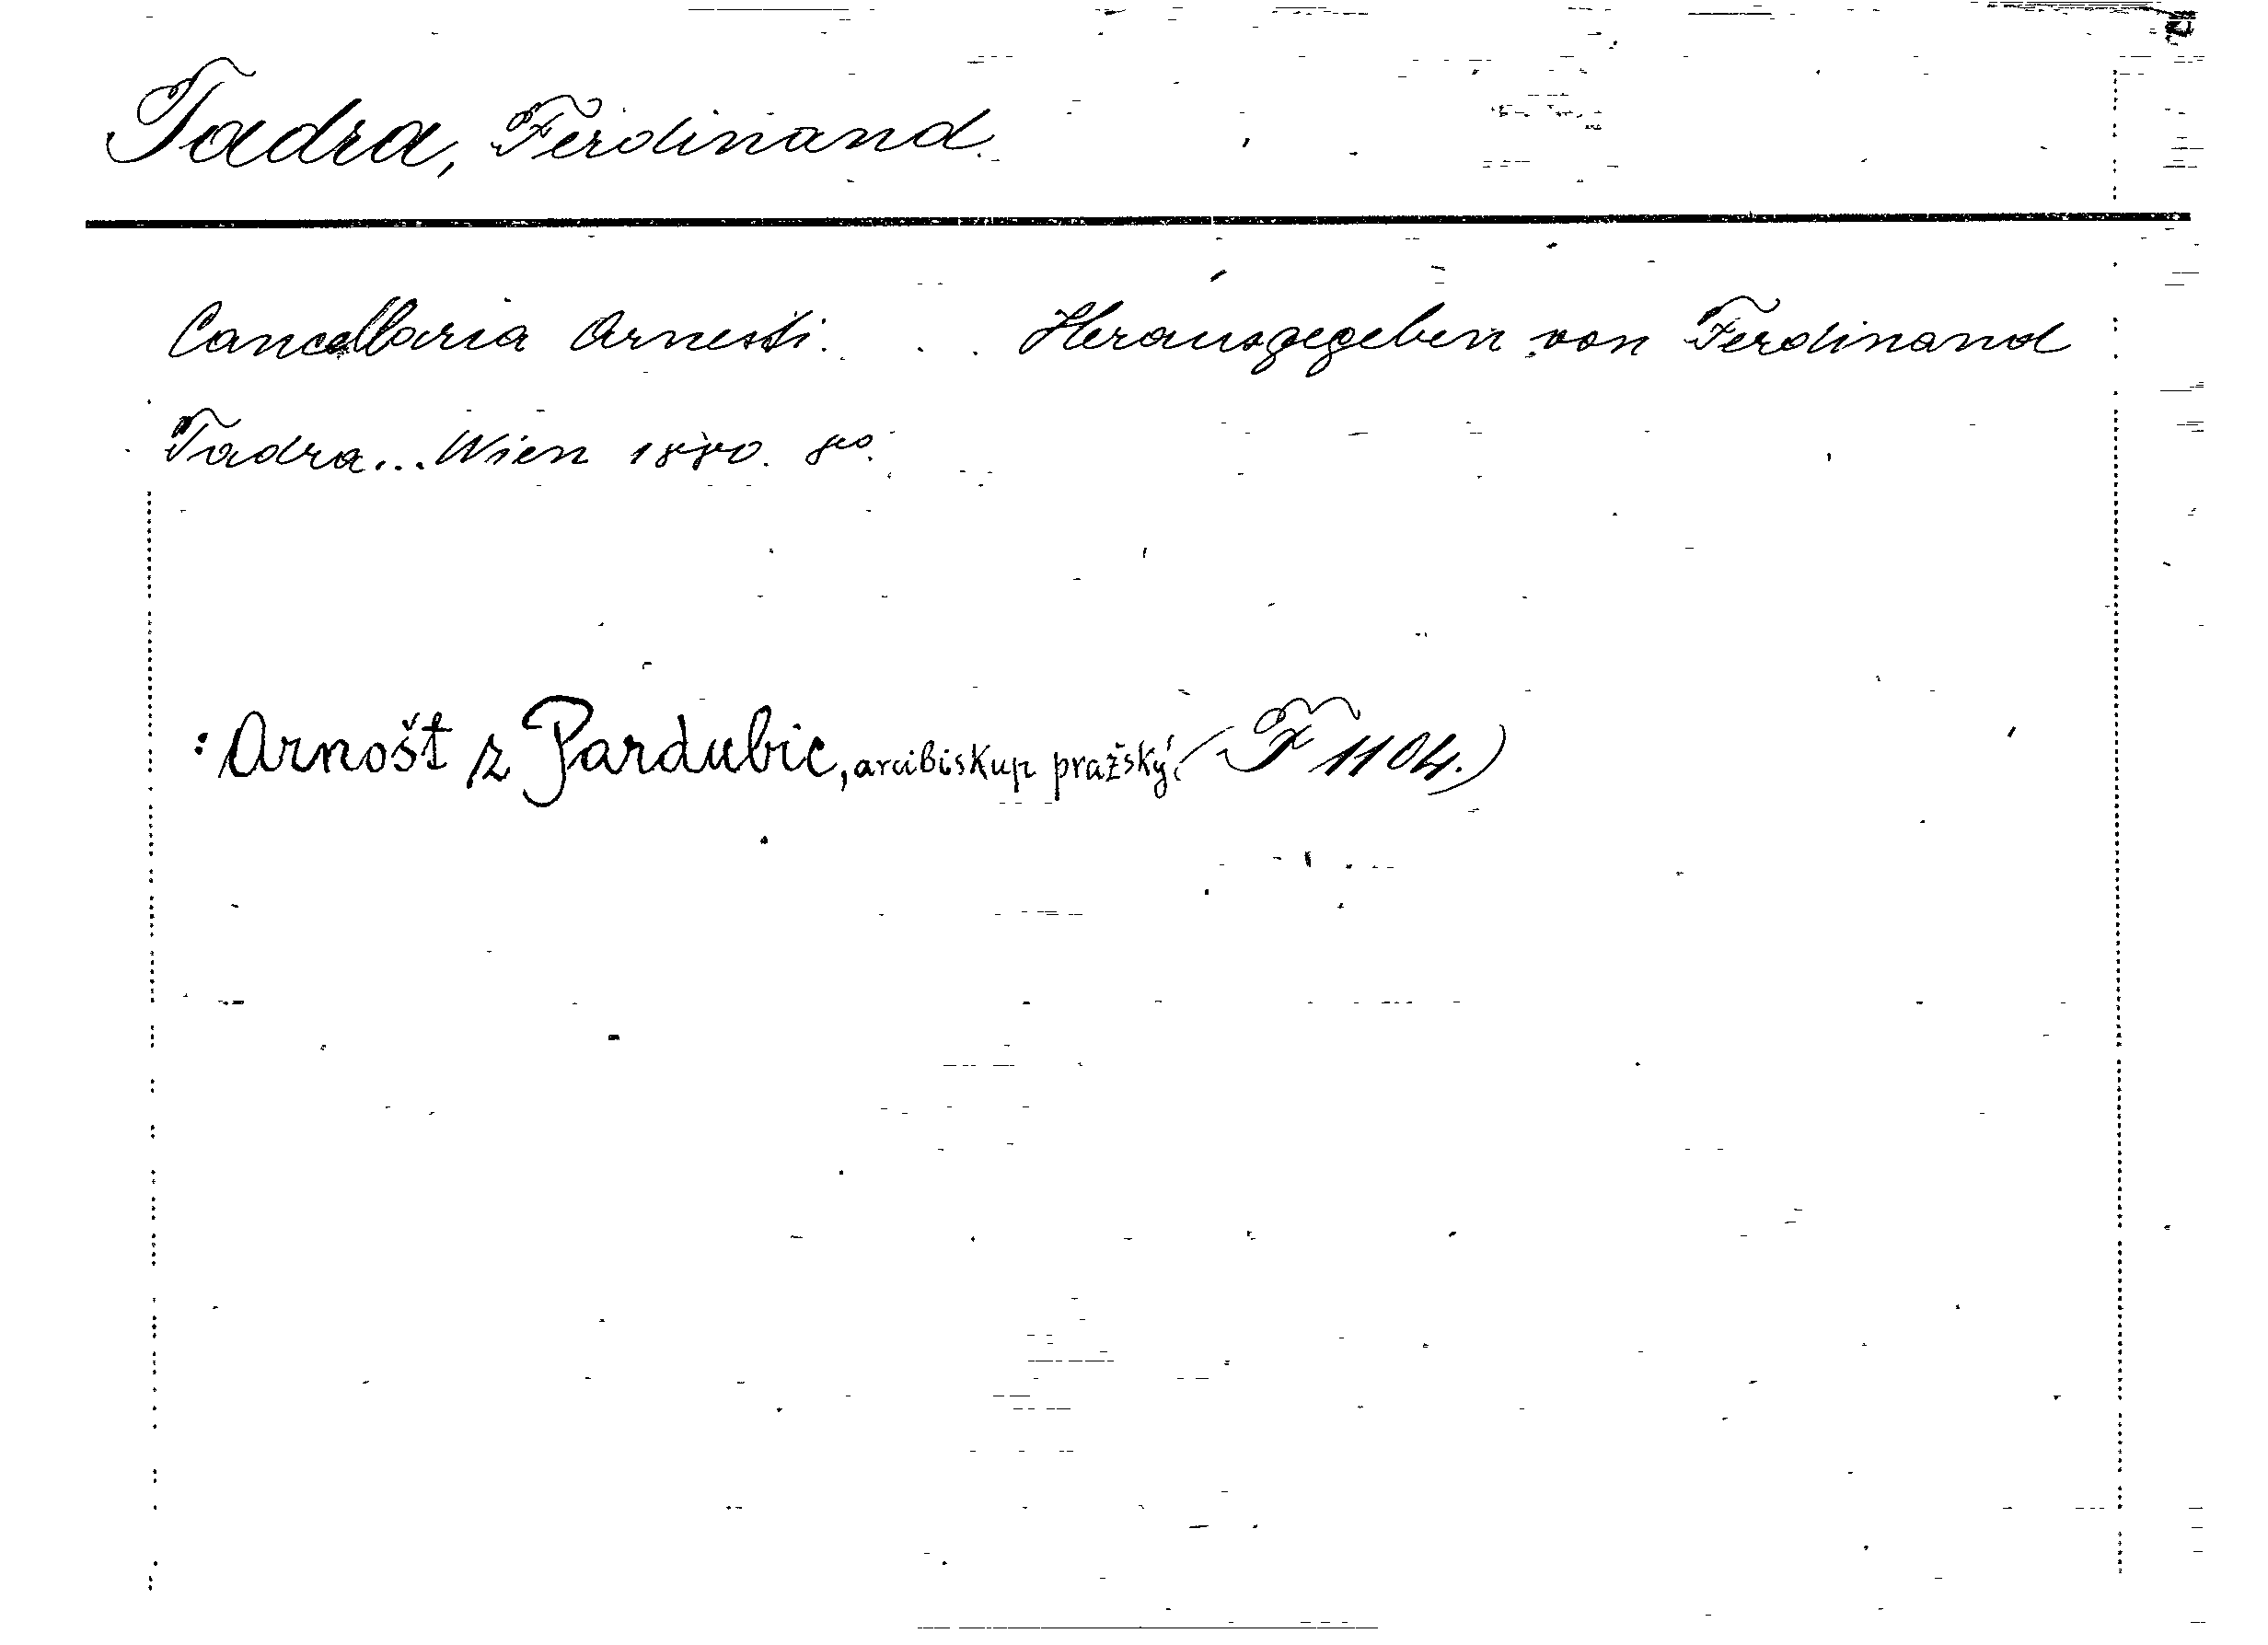 Tadra, Ferdinand.
Cancellaria Arnesti. . . Herausgegeben von Ferdinand
Tadra... Wien 1880. 8o.
: Arnošt z Pardubic, arcibiskup pražský (F 1104.)